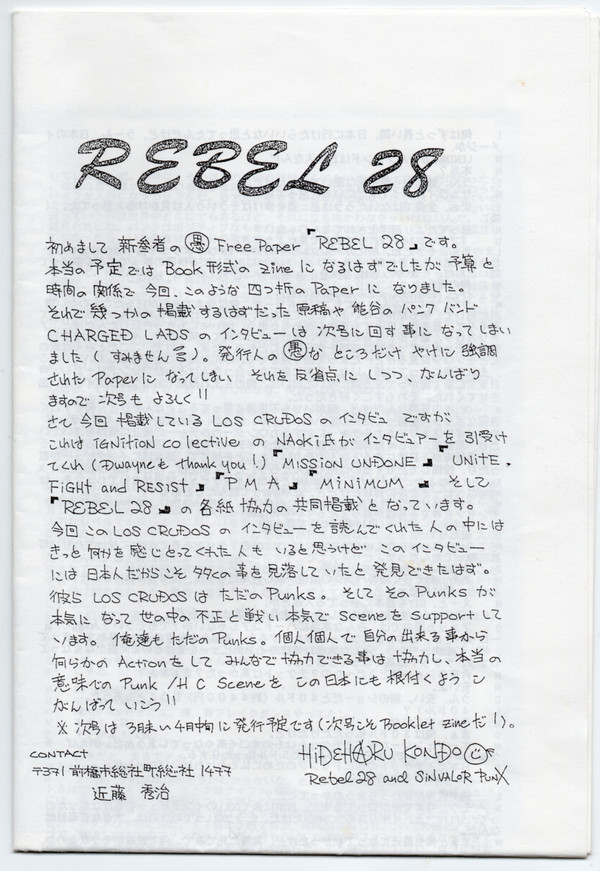 REBEL 28
初めまして 新参者の 愚 Free Paper 『REBEL 28』です。
本当の予定では Book形式の Zineに なるはずでしたが 予算と
時間の関係で 今回、このような 四つ折の Paperに なりました。
それで 幾つかの 掲載するはずだった 原稿や 熊谷の パンク バンド
CHARGED LADSの インタビューは 次号に 回す事に なってしまい
ました ( すみません )。 発行人の 愚な ところだけ やけに 強調
された Paperに なってしまい それを 反省点に しつつ、がんばり
ますので 次号も よろしく!!
さて 今回 掲載している LOS CRUDOSの インタビュ ですが
これは iGNiTiON collectiveの NAOki氏が インタビュアーを 引受け
てくれ (Dwayneも thank you!)『MiSSiON UNDONE』『UNiTE,
FiGHT and RESiST』『P M A』『MiNiMUM』そして
『REBEL 28』の 各紙 協力の 共同掲載と なっています。
今回 この LOS CRUDOSの インタビューを 読んでくれた 人の 中には
きっと 何かを 感じとってくれた 人も いると 思うけど この インタビュー
には 日本人だからこそ 多くの 事を 見落していたと 発見できたはず。
彼ら LOS CRUDOSは ただの Punks。 そして その Punksが
本気に なって 世の中の 不正と 戦い 本気で Sceneを Supportして
います。 俺達も ただの Punks。 個人個人で 自分の 出来る 事から
何らかの Actionをして みんなで 協力できる 事は 協力し、本当の
意味での Punk /H C Sceneを この 日本にも 根付くよう
がんばって いこう!!
※ 次号は 3月末い 4月中旬に 発行予定です (次号こそ Booklet Zineだ!)。
CONTACT
〒371 前橋市総社町総社 1477
近藤 秀治
HiDEHARU KONDO
Rebel 28 and SiNVALOR PUNX